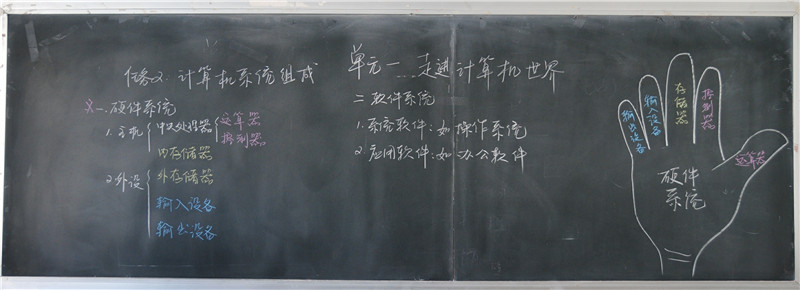 单元一 走进计算机世界
任务2：计算机系统组成
一、硬件系统
1.主机 中央处理器 运算器
控制器
内存储器
2.外设 外存储器
输入设备
输出设备
二 软件系统
1.系统软件：如 操作系统
2.应用软件：如 办公软件
输出设备
输入设备
存储器
控制器
运算器
硬件
系统